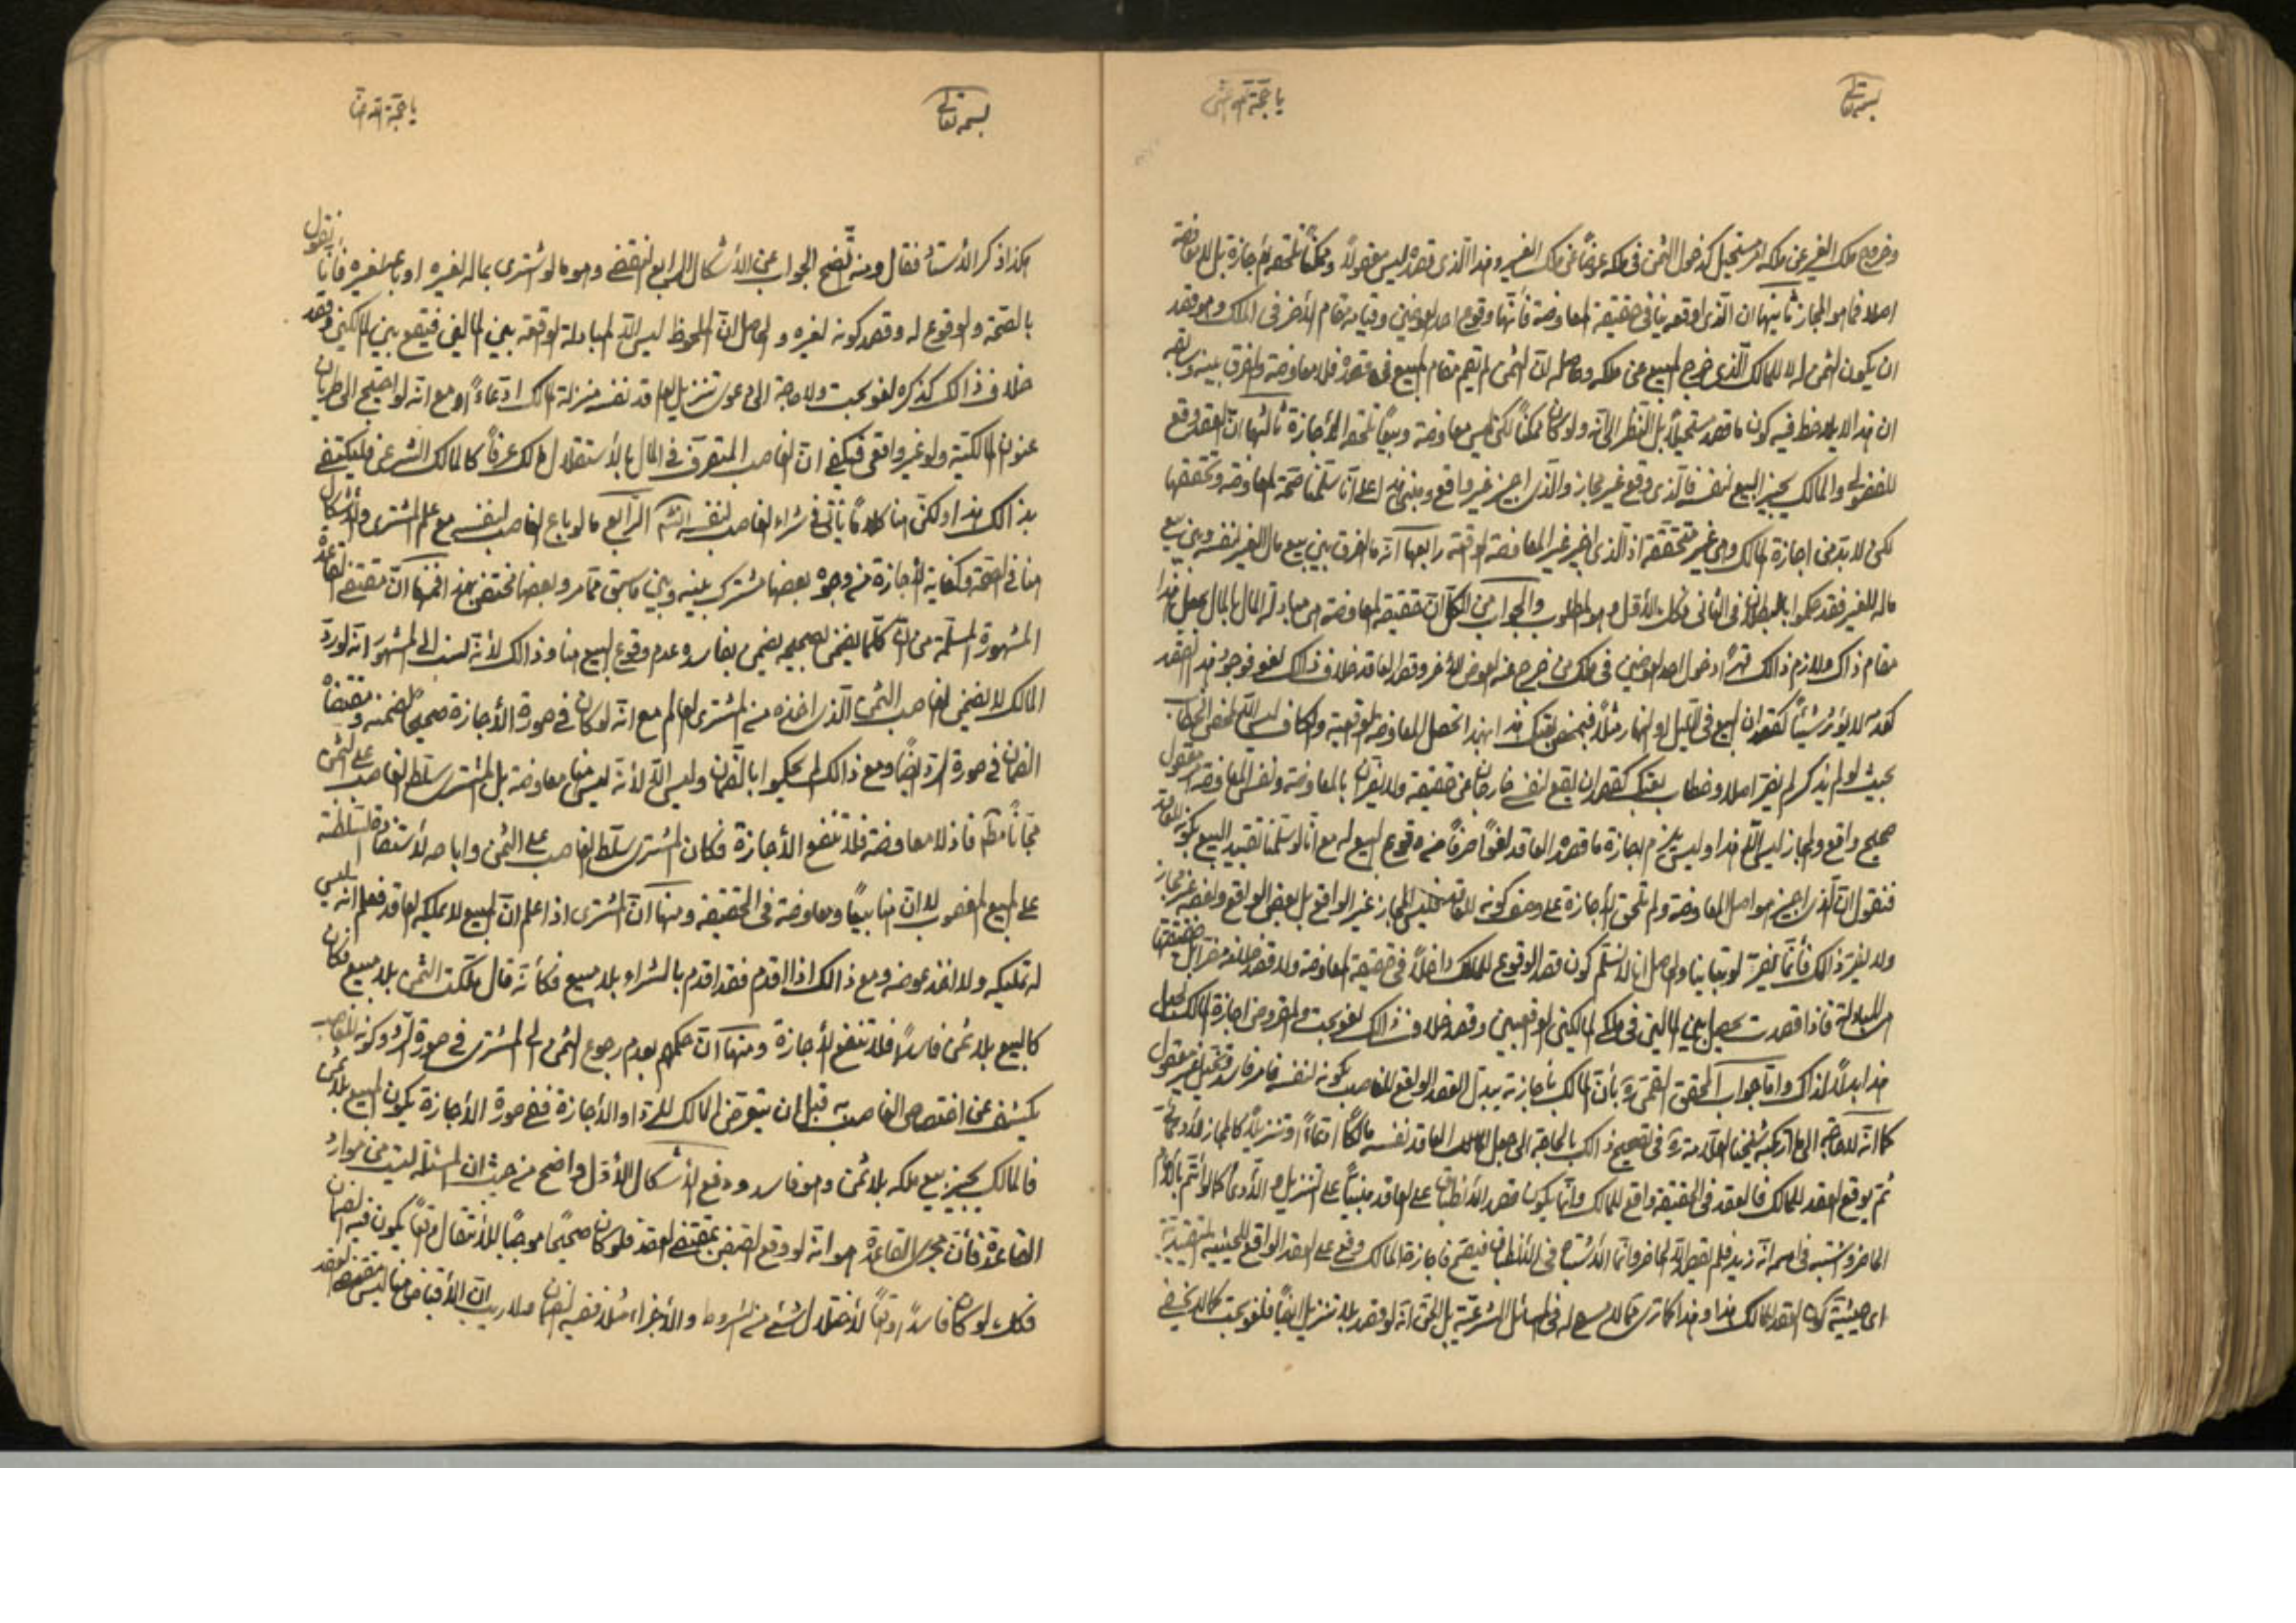 بسمه تعالى
يا حجة الله
وخروج ملك الغير عن ملكه امر مستحيل كدخول الثمن في ملكه عوضاً عن ملك الغير وهذا الذى قصده ليس معقولاً وممكناً تلحقه الأجازة بل لا معاوضة
اصلا فما هو المجاز ثانيها ان الذى اوقعه ينافى حقيقة المعاوضة فأنها وقوع احد العوضين وقيامه مقام الأخر فى الملك وهو قصد
ان يكون الثمن له لا للمالك الذى خرج المبيع عن ملكه وحاصله انّ الثمن لم يقم مقام المبيع فى قصده فلا معاوضة والفرق بينه وسابقه
ان هذا لا يلاحظ فيه كون ما قصده مستحيلاً بل النظر الى انه ولو كان ممكناً لكن ليس معاوضة وبيعاً تلحقه الأجازة ثالثها انّ العقد وقع
للفضولى والمالك يجيز البيع لنفسه فالذى وقع غير مجاز والذى اجيز غير واقع ومبنى هذا على انا سلمنا صحة المعاوضة وتحققها
لكن لا بد من اجازة المالك وهى غير متحققة اذ الذى اجيز غير المعاوضة الواقعة رابعها انه ما الفرق بين بيع مال الغير لنفسه وبين بيع
ماله للغير فقد حكموا بالبطلان فى الثانى فكذلك الأول وهو المطلوب والجواب عن الكل ان حقيقة المعاوضة هى مبادلة المال بالمال بجعل هذا
مقام ذاك ولازم ذالك قهراً دخول احد العوضين فى ملك من خرج عنه العوض الأخر وقصد العاقد خلاف ذالك لغو فوجود هذا القصد
كعدمه لا يؤثر شيئاً كقصد ان البيع فى الليل او النهار مثلاً
بحيث لو لم يذكر لم يضر اصلا وخطاب بعتك كقصد ان يقع لنفسه خارجان عن حقيقة
صحيح واقع والمجاز ليس الّا هذا وليس يلزم اجازة ما قصده العاقد لغواً صرفاً من وقوع البيع له مع انا لو سلمنا تقييد البيع بكونه للعاقد
فنقول انّ الذى اجيز هو اصل المعاوضة ولم تلحق الأجازة على وصف كونه للعاقد فليس المجاز غير الواقع بل بعض الواقع وبعضه غير مجاز
ولا يضر ذالك فأنما يضر لو تباينا والحاصل انا لا نسلم كون قصد الوقوع للملك داخلاً فى حقيقة المعاوضة ولا قصد خلافه مضراً بل حقيقتها
هى المبادلة فاذا قصدت يحصل بين المالين فى ملكى المالكين الواقعيين وقصد خلاف ذالك لغو بحت والمفروض اجازة المالك لجعل
هذا بدلاً لذاك وامّا جواب المحقق القمى ره بأن المالك بأجازته يبدل العقد الواقع للغاصب بكونه لنفسه فأمر فاسد وتخيل غير معقول
كما انه لا حاجة الى ما ارتكبه شيخنا العلامة ره فى تصحيح ذالك بالحاجة الى جعل العاقد نفسه مالكاً ادعاءً وتنزيلاً كالمجاز
ثم يوقع العقد للمالك فالعقد فى الحقيقة واقع للمالك وانما يكون قصد الأنطباق على العاقد مبنياً على التنزيل والأدعاء كما لو ائتم بالأمام
الحاضر واشتبه فى اسمه انه زيد فلم يقصد الّا الحاضر وانما الأشتباه فى الأنطباق فيصح فأجازة المالك وقع على العقد الواقع للحيثية التقييدية
اى حيثية كون العقد للمالك هذا وهذا كما ترى مما لا مسرح له فى المسائل الشرعية بل الحق انه لو قصد بلا تنزيل ايضاً فلغو بحت كما لا يخفى
بسمه تعالى
يا حجة الله
هكذا ذكر الأستاد فقال ومنه يتضح الجواب عن الأشكال الرابع النقضى وهو ما لو اشترى بماله لغيره او باع لغيره فأنا نقول
بالصحة والوقوع له وقصد كونه لغيره والحاصل انّ الملحوظ ليس الّا المبادلة الواقعة بين المالين فيقع بين المالكين وقصد
خلاف ذالك كذكره لغو بحت ولا حاجة الى دعوى تنزيل العاقد نفسه منزلة المالك ادعاءً او مع انه لو احتيج الى طريان
عنوان المالكية ولو غير واقعى فيكفى انّ الغاصب المتصرف فى المال بالأستقلال مالك عرفاً كالمالك الشرعى فليكتفى
بذالك هذا ولكن هنا كلاماً يأتى فى شراء الغاصب لنفسه الرابع ما لو باع الغاصب لنفسه مع علم المشترى والأشكال
هنا فى الصحة وكفاية الأجازة من وجوه بعضها مشترك بينه وبين ما سبق مما مر وبعضها مختص بهذا فمنها انّ مقتضى القاعدة
المشهورة المسلمة من انّ كلما يضمن بصحيحه يضمن بفاسده عدم وقوع البيع هنا وذالك لأنه نسب الى المشهور انه لو رد
المالك لا يضمن الغاصب الثمن الذى اخذه من المشترى العالم مع انه لو كان فى صورة الأجازة صحيحاً لضمنه ومقتضاه
الضمان فى صورة الرد ايضاً ومع ذالك لم يحكموا بالضمان وليس الّا لأنه ليس هنا معاوضة بل المشترى سلط الغاصب على الثمن
مجّاناً فاذ لا معاوضة فلا تنفع الأجازة فكان المشترى سلط الغاصب على الثمن واباحه لأستنقاذه لسلطنته
على المبيع المغصوب لا انّ هنا بيعاً ومعاوضة فى الحقيقة ومنها انّ المشترى اذا علم انّ المبيع لا يملكه العاقد فعلم انه ليس
له تمليكه ولا اخذ عوضه ومع ذالك اذا اقدم فقد اقدم بالشراء بلا مبيع فكأنه قال ملكت الثمن بلا مبيع فكان
كالبيع بلا ثمن فاسداً فلا تنفع الأجازة ومنها انّ حكمهم بعدم رجوع الثمن الى المشترى فى صورة الرد وكونه للغاصب
يكشف عن اختصاص الغاصب به قبل ان يتعرض المالك للرد او الأجازة ففى صورة الأجازة يكون المبيع بلا ثمن
فالمالك يجيز بيع ملكه بلا ثمن وهو فاسد ودفع الأشكال الأول واضح من حيث ان المسئلة ليست من موارد
القاعدة فأنّ مجرى القاعدة هو انه لو وقع القبض بمقتضى العقد فلو كان صحيحاً موجباً للأنتقال واقعاً يكون فيه الضمان
فكذلك لو كان فاسداً واقعاً لأختلال شئ من الشروط والأجزاء مثلاً ففيه الضمان ولا ريب انّ الأقباض هنا ليس مقتضى العقد